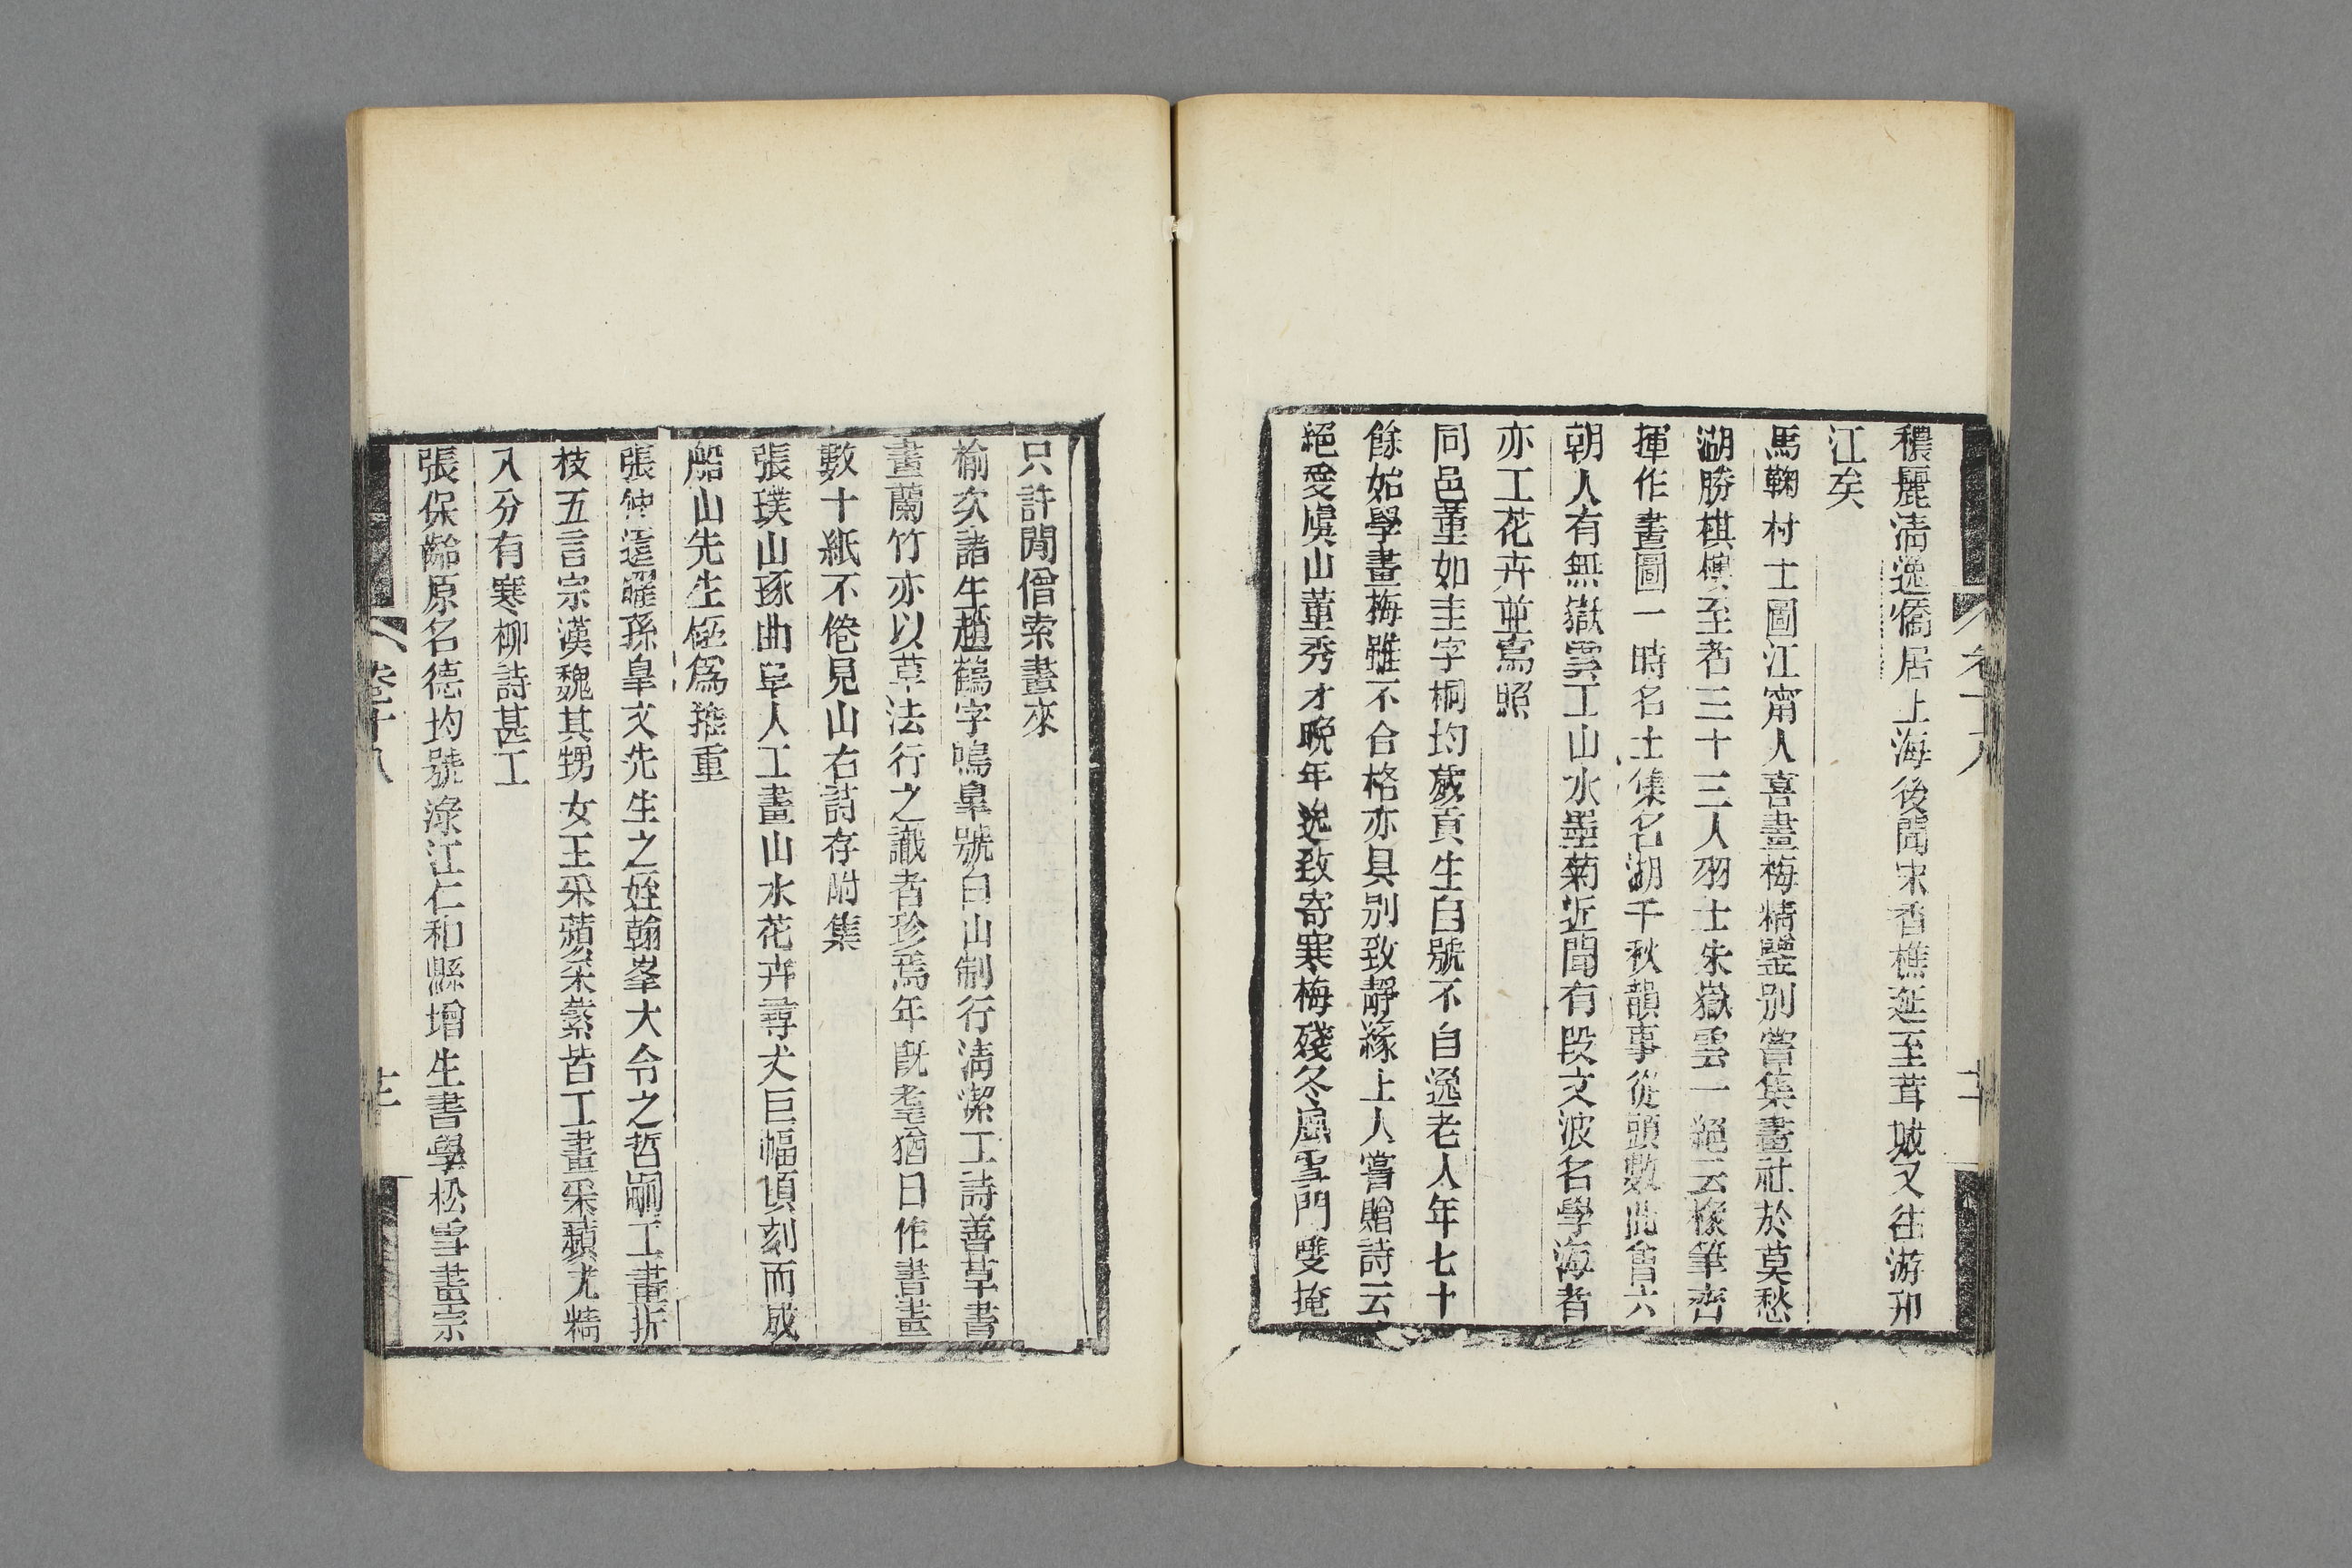 穠麗淸逸僑居上海後聞宋香樵延至茸城又往游邗
江矣
馬鞠村士圖江甯人喜畫梅精鑒別嘗集畫社於莫愁
湖勝棋樓至者三十三人羽士朱嶽雲一絕云椽筆齊
揮作畫圖一時名士集名湖千秋韻事從頭數此會六
朝人有無嶽雲工山水墨菊近聞有段文波名學海者
亦工花卉並寫照
同邑董如圭字桐圴歲貢生自號不自逸老人年七十
餘始學畫梅雖不合格亦具別致靜緣上人嘗贈詩云
絕愛虞山董秀才晚年逸致寄寒梅殘冬風雪門雙掩
只許閒僧索畫來
榆次諸生趙鶴字鳴臯號白山制行淸潔工詩善草書
畫蘭竹亦以草法行之識者珍焉年旣耄猶日作書畫
數十紙不倦見山右詩存附集
張璞山琢曲阜人工畫山水花卉尋丈巨幅頃刻而成
船山先生極爲推重
張仲遠曜孫臯文先生之姪翰峯大令之哲嗣工畫折
枝五言宗漢魏其甥女王采蘋采蘩皆工畫采蘋尤精
八分有寒柳詩甚工
張保齡原名德圴號淥江仁和縣增生書學松雪畫宗
卷十八
卷十八